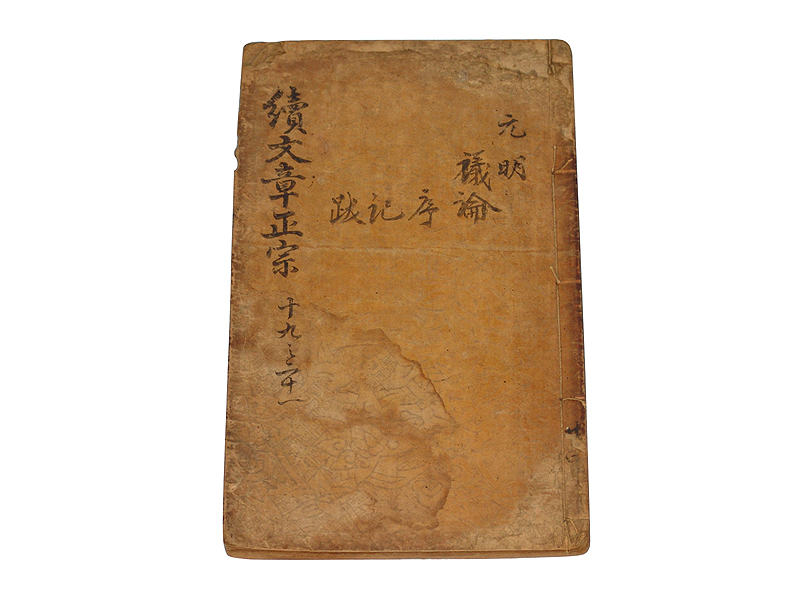 元明
議論
序
記
跋
續文章正宗
十九之廿一